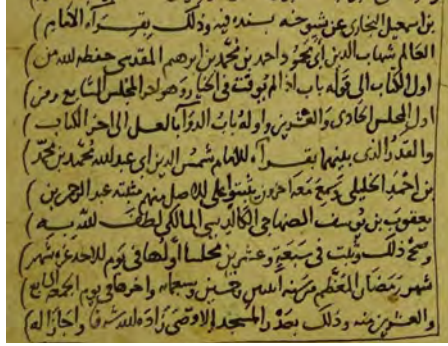 بن اسمعيل البخاري عن شيوخه بسنده فيه وذلك بقراءة الامام
العالم شهاب الدين ابي محمود احمد بن محمد بن ابرهيم المقدسي حفظه الله من
اول الكتاب الى قوله باب اذا لم يوقت في الخيار وهو اخر المجلس السابع ومن
اول المجلس الحادي والعشرين واوله باب الدواء بالعسل الى اخر الكتاب
والقدر الذي بينهما بقراءة الامام شمس الدين ابي عبد الله محمد بن محمد
بن احمد الخليلي وسمع معه اخرون يثبتوا على الاصل منهم مثبته عبد الرحمن بن
يعقوب بن يوسف الصنهاجي المالكي لطف الله به
وصح ذلك وثبت في سبعة وعشرين مجلسا اولها في يوم الاحد غرة شهر
شهر رمضان المعظم من سنة اثنتين وخمسين وسبعمائة واخرها في يوم الجمعة السابع
والعشرين منه وذلك بصدر المسجد الاقصى زاده الله شرفا واجاز له